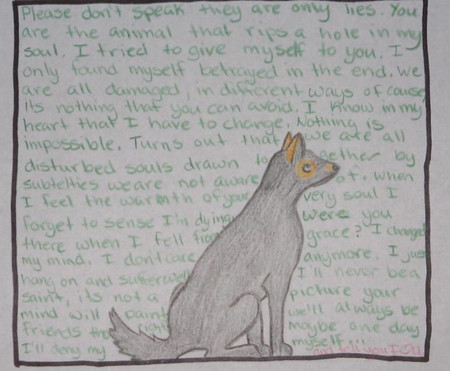 Please don't speak they are only lies. You
are the animal that rips a hole in my
soul. I tried to give myself to you. I
only found myself betrayed in the end. We
are all damaged, in different ways of cause
Its nothing that you can avoid. I know in my
heart that I have to change. Nothing is
impossible. Turns out that we are all
disturbed souls drawn together by
subtelties we are not aware of. When
I feel the warmth of your very soul I
forget to sense I'm dying were you
there when I fell from grace? I change
my mind. I don't care anymore. I just
hang on and suffer well I'll never be a
saint, its not a picture your
mind will paint we'll always be
friends right maybe one day
I'll deny my myself